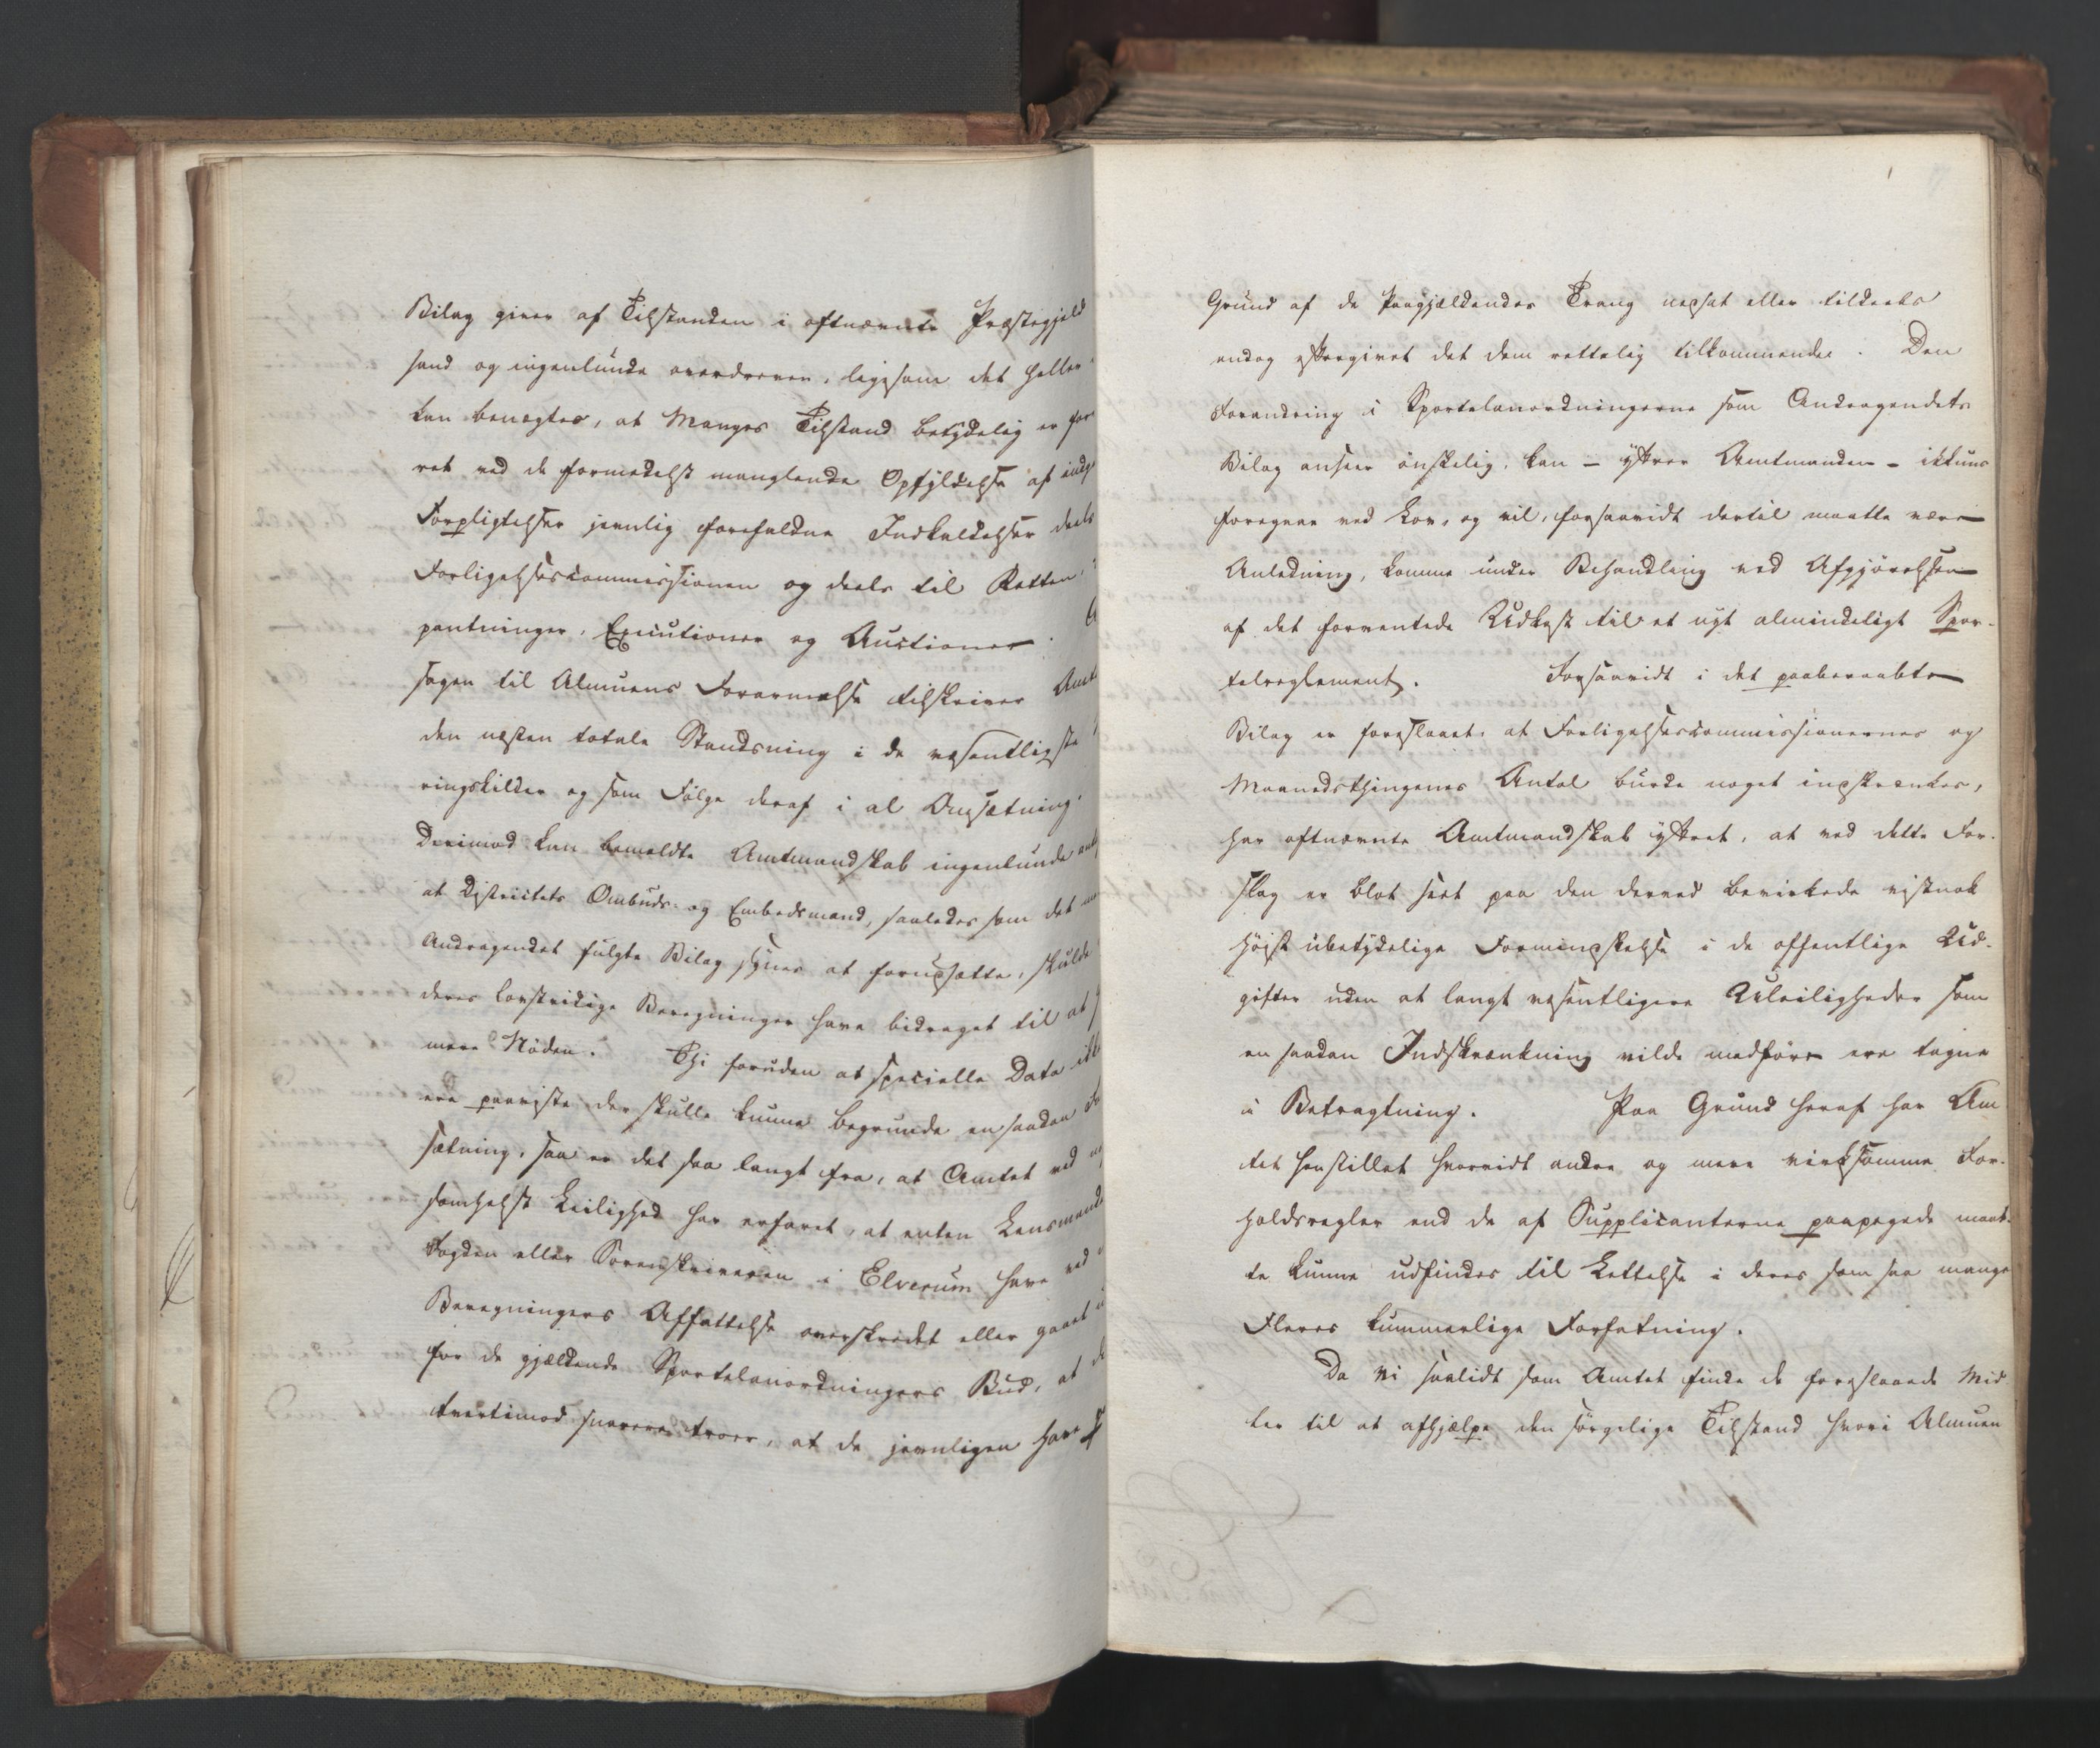 Bilag giver af Tilstanden i oftnævnte Præstegjeld
sand og ingenlunde overdreven, ligesom det heller
kan benægtes, at Manges Tilstand betydelig er for
ret ved de formedelst manglende Opfyldelse af indg
Forpligtelser jevnlig forefaldne Indkaldelser deels
Forligelsescommissionen og deels til Retten,
pantninger, Executioner og Auctioner.
sagen til Almuens Forarmelse tilskriver Amt
den næsten totale Standsning i de væsentligste
ringskilder og som Følge deraf i al Omsætning.
Derimod kan bemeldte Amtmandskab ingenlunde ant
at Districtets Ombuds- og Embedsmænd, saaledes som det
Andragendet fulgte Bilag synes at forudsætte, skulde
deres lovstridige Beregninger have bidraget til at
mere Nøden. Thi foruden at specielle Data ikke
ere paaviste der skulle kunne begrunde en saadan
sætning, saa er det saa langt fra, at Amtet ved
somhelst Leilighed har erfaret, at enten Lensmænd
Fogden eller Sorenskriveren i Elverum have ved
Beregningers Affattelse overskredet eller gaaet
for de gjældende Sportelanordningers Bud, at de
tvertimod snarere troer, at de jevnligen have
Grund af de Paagjældendes Trang nedsat eller tildeels
endog eftergivet det dem rettelig tilkommende. Den
Forandring i Sportelanordningerne som Andragendets
Bilag anseer ønskelig, kan - yttrer Amtmanden - ikkuns
foregaae ved Lov, og vil, forsaavidt dertil maatte være
Anledning, komme under Behandling ved Afgjørelsen
af det forventede Udkast til et nyt almindeligt Spor-
telreglement. Forsaavidt i det paaberaabte
Bilag er foreslaaet, at Forligelsescommissionernes og
Maanedsthingenes Antal burde noget indskrænkes,
har oftnævnte Amtmandskab yttret, at ved dette For-
slag er blot seet paa den derved bevirkede vistnok
høist ubetydelige Formindskelse i de offentlige Ud-
gifter uden at langt væsentligere Uleiligheder som
en saadan Indskrænkning vilde medføre ere tagne
i Betragtning. Paa Grund heraf har Am
tet henstillet hvorvidt andre og mere virksomme For-
holdsregler end de af Supplicanterne paapegede maat-
te kunne udfindes til Lettelse i deres som saa mange
Fleres kummerlige Forfatning.
Da vi saalidt som Amtet finde de foreslaaede Mid
ler til at afhjælpe den sørgelige Tilstand hvori Almuen